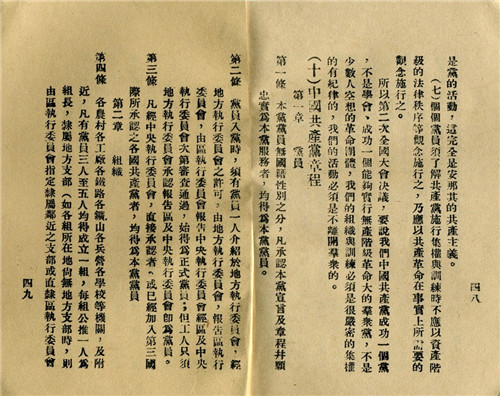 四八
是黨的活動，這完全是安那其的共產主義。
（七）個個黨員須了解共產黨施行集權與訓練時不應以資產階
級的法律秩序等觀念施行之，乃應以共產革命在事實上所需要的
觀念施行之。
所以第二次全國大會决議，要說我們中國共產黨成功一個黨
，不是學會、成功一個能夠實行無產階級革命大的羣衆黨，不是
少數人空想的革命團體，我們的組織與訓練必須是很嚴密的集權
的有紀律的，我們的活動必須是不離開羣衆的。
（十）中國共產黨章程
第一章 黨員
第一條 本黨黨員無國籍性別之分，凡承認本黨宣言及章程幷願
忠實爲本黨服務者，均得爲本黨黨員。
第二條 黨員入黨時，須有黨員一人介紹於地方執行委員會，經
地方執行委員會之許可，由地方執行委員會，報告區執行
委員會，由區執行委員會報告中央執行委員會經區及中央
執行委員會次第審査通過，始得爲正式黨員；但工人只須
地方執行委員會承認報告區及中央執行委員會卽爲黨員。
第三條 凡經中央執行委員會，直接承認者、或已經加入第三國
際所承認之各國共產黨者，均得爲本黨黨員
第二章 組織
第四條 各農村各工廠各鐵路各鑛山各兵營各學校等機關，及附
近，凡有黨員三人至五人均得成立一組，每組公推一人爲
組長，隸屬地方支部（如各組所在地尙無地方支部時，則
由區執行委員會指定隸屬鄰近之支部或直隸區執行委員會
四九